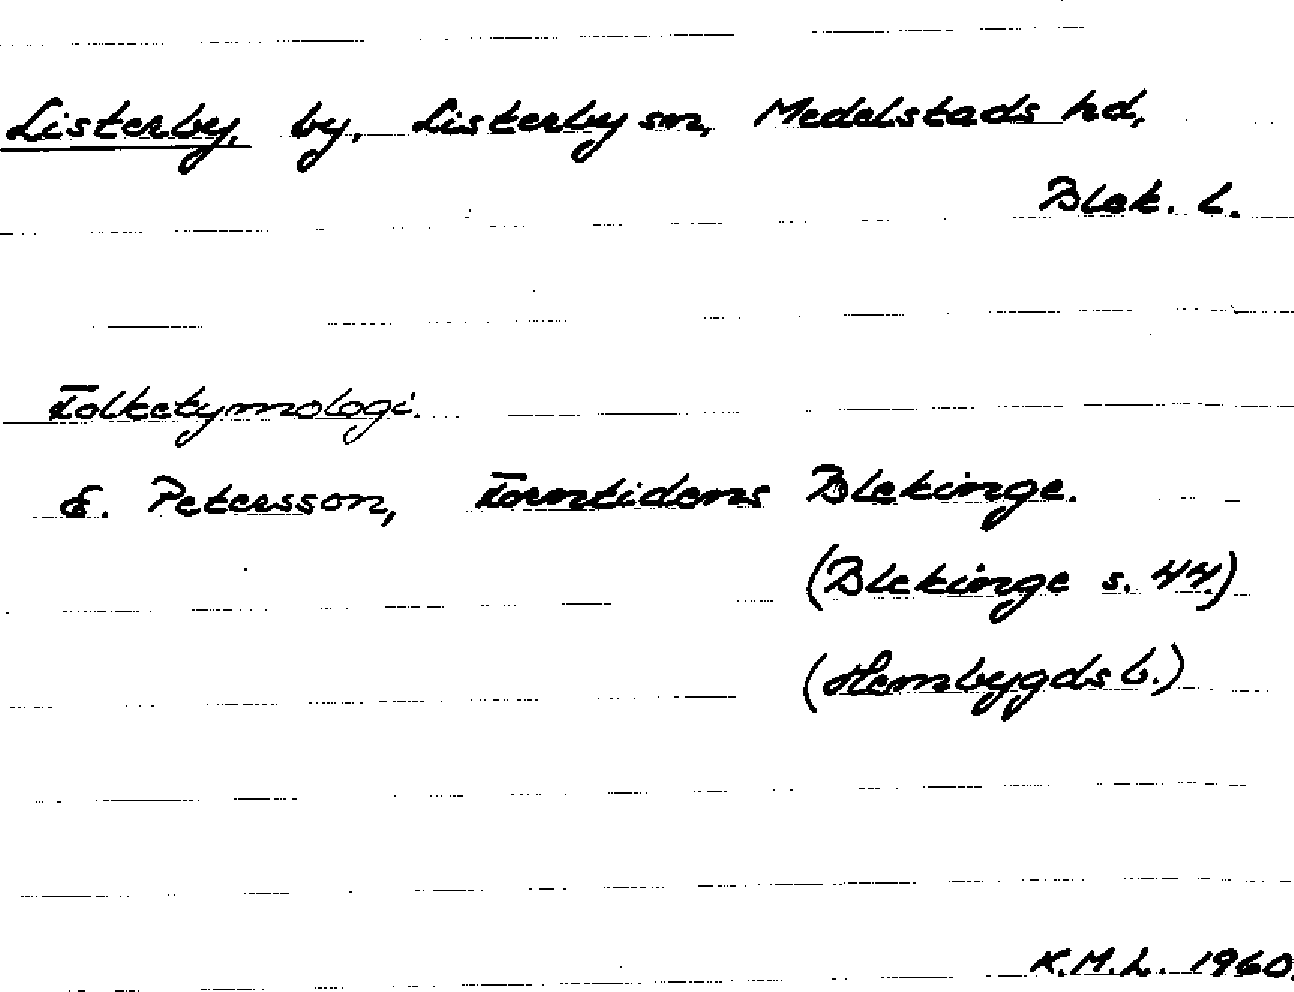 Listerby, by, Listerby sn, Medelstads hd,
Blek. l.
Folketymologi.
E. Petersson, Forntidens Blekinge.
(Blekinge s. 44)
(Hembygdsb.)
K.M.L. 1960.